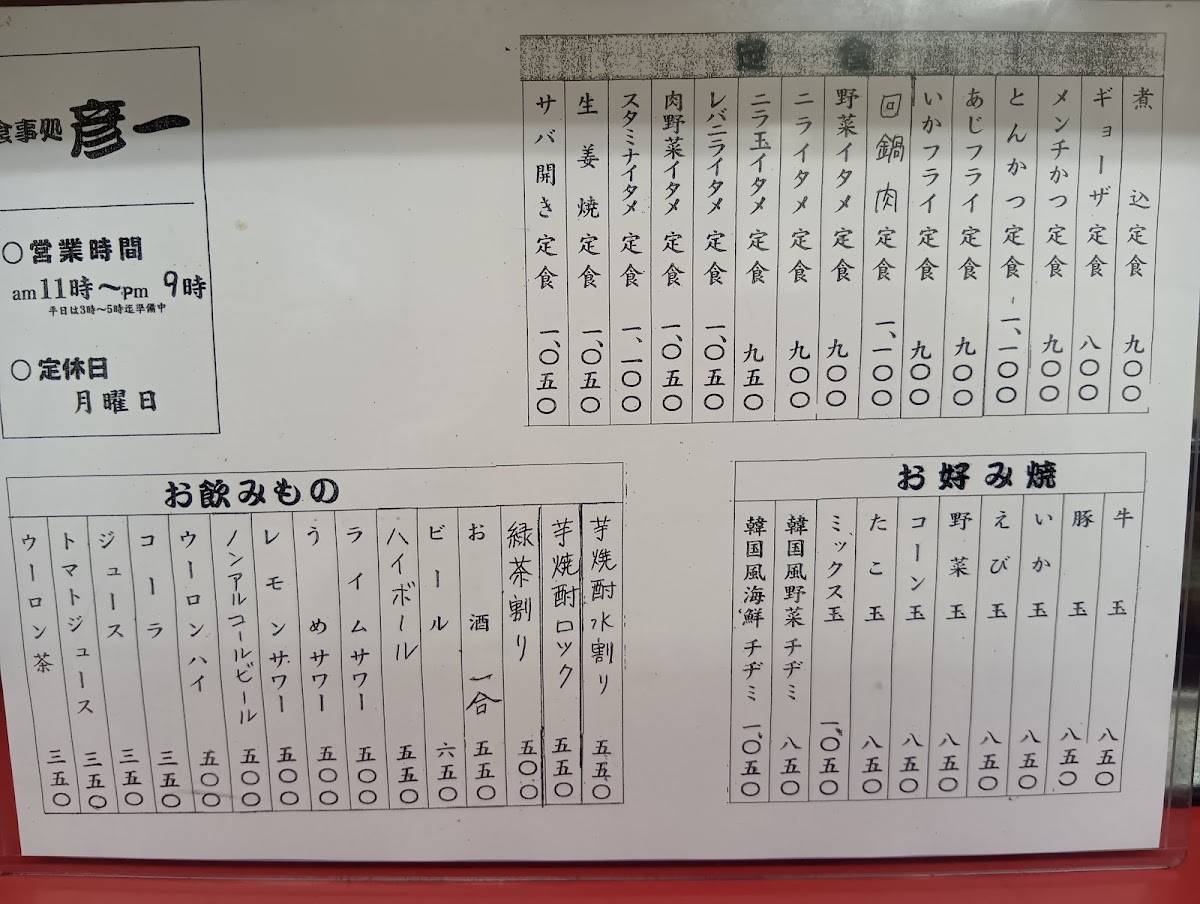 定食
煮込定食 九〇〇
ギョーザ定食 八〇〇
メンチかつ定食 九〇〇
とんかつ定食 一、一〇〇
あじフライ定食 九〇〇
いかフライ定食 九〇〇
回鍋肉定食 一、一〇〇
野菜イタメ定食 九〇〇
ニライタメ定食 九〇〇
ニラ玉イタメ定食 九五〇
レバニライタメ定食 一、〇五〇
肉野菜イタメ定食 一、〇五〇
スタミナイタメ定食 一、一〇〇
生姜焼定食 一、〇五〇
サバ開き定食 一、〇五〇
食事処 彦一
〇営業時間
am11時～pm 9時
平日は3時～5時迄準備中
〇定休日
月曜日
お好み焼
牛玉 八五〇
豚玉 八五〇
いか玉 八五〇
えび玉 八五〇
野菜玉 八五〇
コーン玉 八五〇
たこ玉 八五〇
ミックス玉 一、〇五〇
韓国風野菜チヂミ 八五〇
韓国風海鮮チヂミ 一、〇五〇
お飲みもの
芋焼酎水割り 五五〇
芋焼酎ロック 五五〇
緑茶割り 五〇〇
お酒一合 五五〇
ビール 六五〇
ハイボール 五五〇
ライムサワー 五〇〇
うめサワー 五〇〇
レモンサワー 五〇〇
ノンアルコールビール 五〇〇
ウーロンハイ 五〇〇
コーラ 三五〇
ジュース 三五〇
トマトジュース 三五〇
ウーロン茶 三五〇